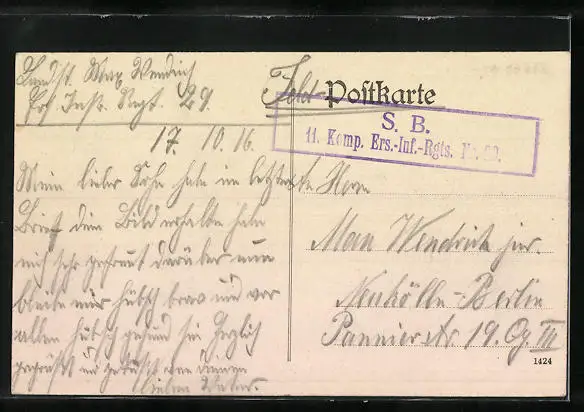 Landst. Max Wendrich
Ers. Inf. Regt. 29.
17. 10. 16.
Mein lieber Sohn habe im letzten
Brief dein Bild erhalten habe
mich sehr gefreut darüber nun
bleibe nur hübsch brav und vor
allem hübsch gesund sei herzlich
gegrüßt und geküßt von deinem
lieben Vater.
Feld-Postkarte
S. B.
11. Komp. Ers.-Inf.-Rgts. Nr. 29.
Herrn
Max Wendrich jur.
Neukölln-Berlin
Pannierstr. 19. Qg. III
1424